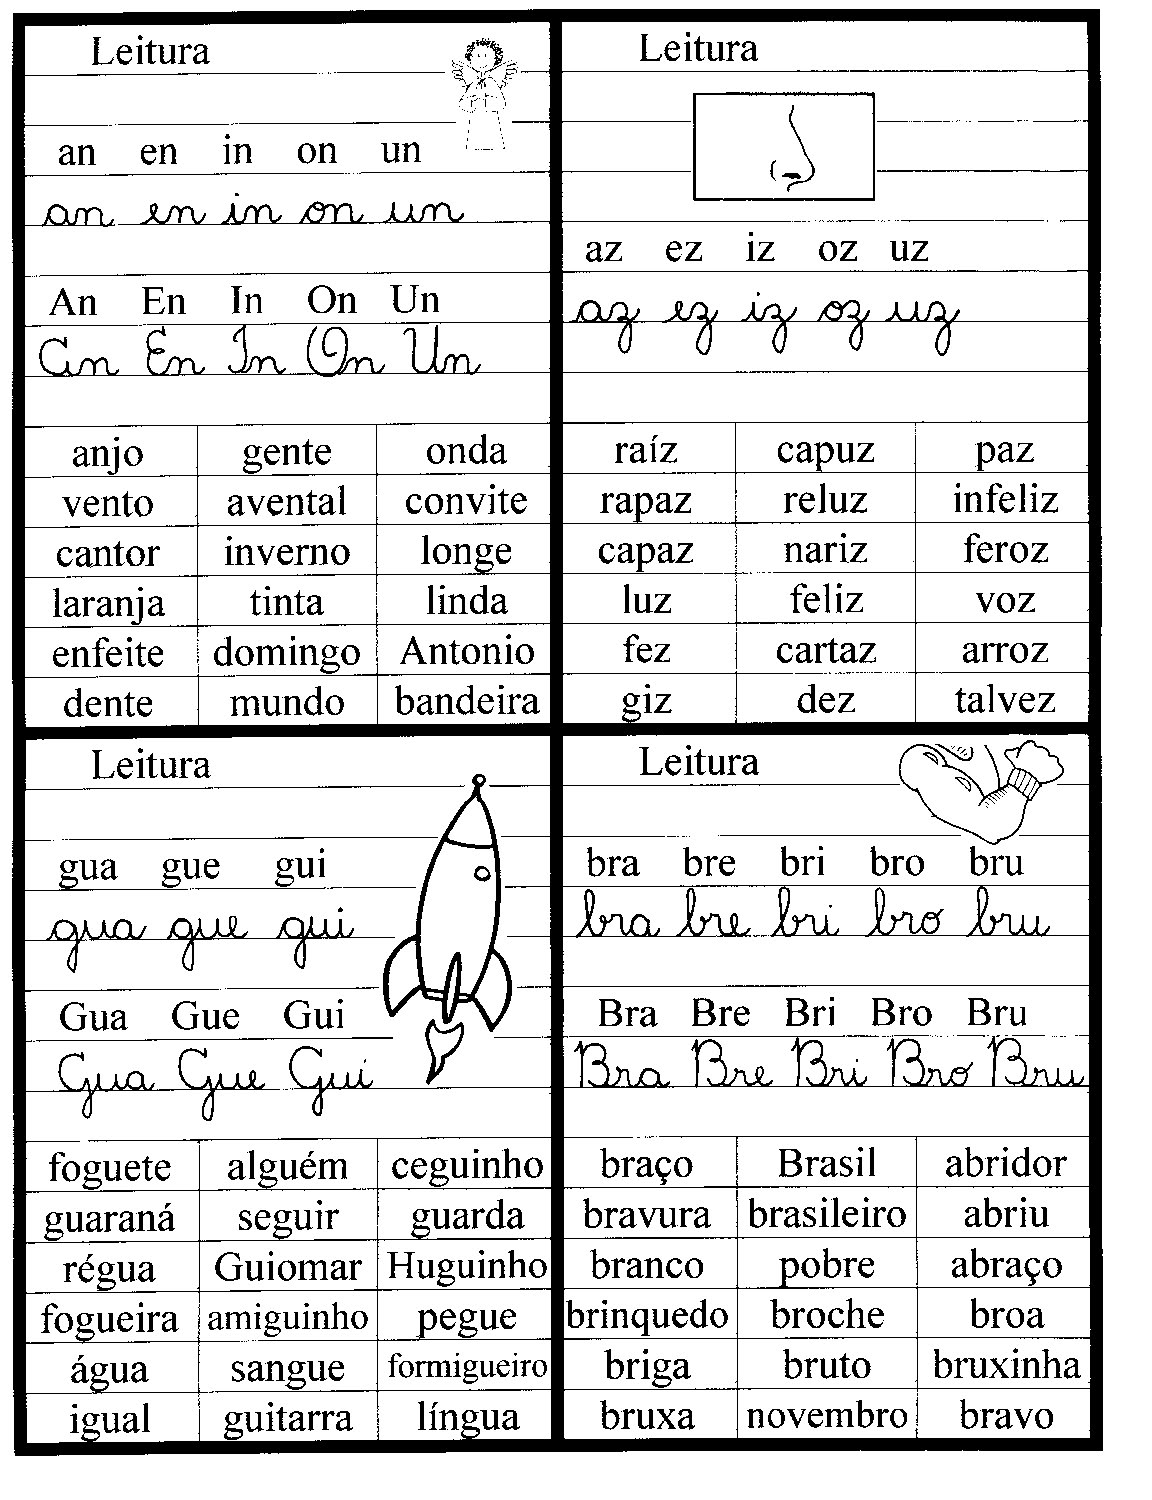 Leitura
an en in on un
an en in on un
An En In On Un
An En In On Un
anjo gente onda
vento avental convite
cantor inverno longe
laranja tinta linda
enfeite domingo Antonio
dente mundo bandeira
Leitura
az ez iz oz uz
az ez iz oz uz
raíz capuz paz
rapaz reluz infeliz
capaz nariz feroz
luz feliz voz
fez cartaz arroz
giz dez talvez
Leitura
gua gue gui
gua gue gui
Gua Gue Gui
Gua Gue Gui
foguete alguém ceguinho
guaraná seguir guarda
régua Guiomar Huguinho
fogueira amiguinho pegue
água sangue formigueiro
igual guitarra língua
Leitura
bra bre bri bro bru
bra bre bri bro bru
Bra Bre Bri Bro Bru
Bra Bre Bri Bro Bru
braço Brasil abridor
bravura brasileiro abriu
branco pobre abraço
brinquedo broche broa
briga bruto bruxinha
bruxa novembro bravo